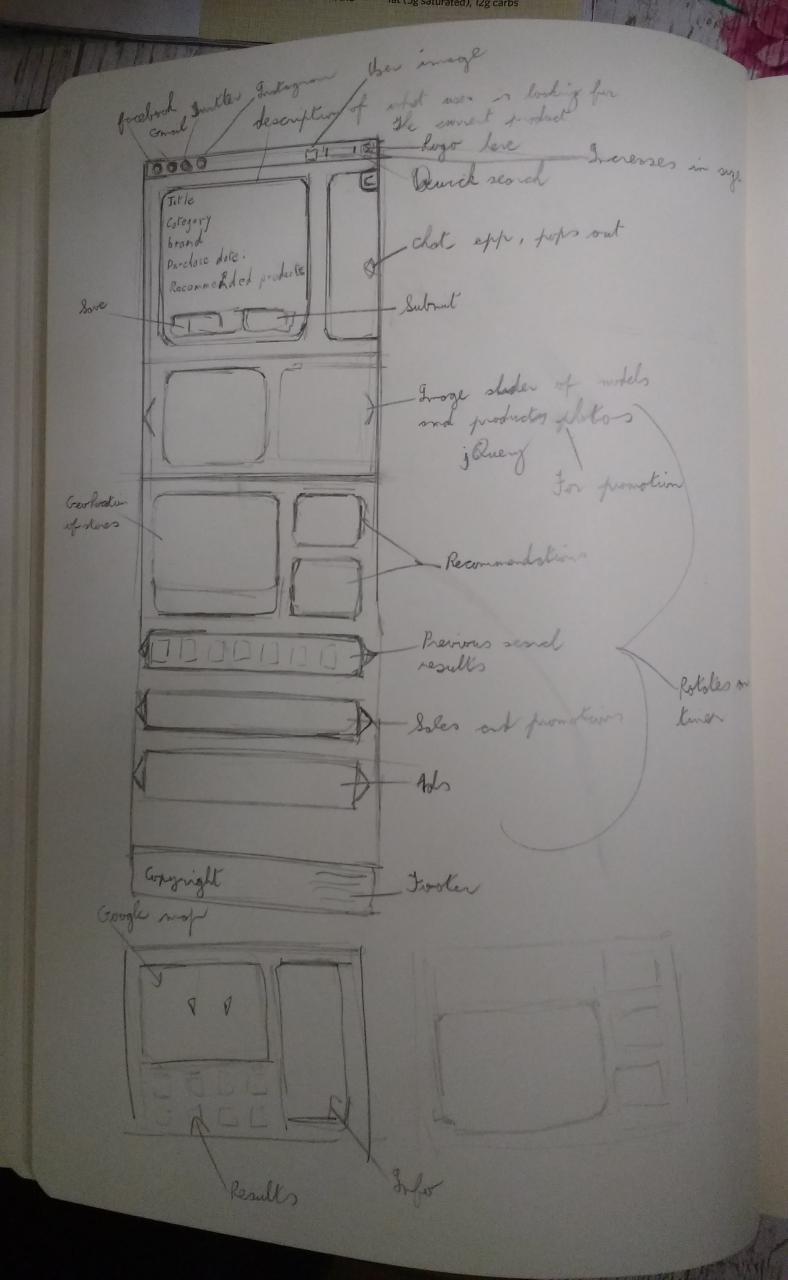 fat (5g saturated), 12g carbs
User image
Instagram
Twitter
Facebook
Gmail
description of what user is looking for
the correct product
Logo here
Increases in size
Quick search
Title
Category
brand
Purchase date.
Recommended products
chat app, pops out
Save
Submit
Image slider of models
and products photos
jQuery
For promotion
Geolocation
of stores
Recommendations
Previous search
results
Rotates on
timer
Sales and promotions
Ads
Copyright
Footer
Google map
Results
Info